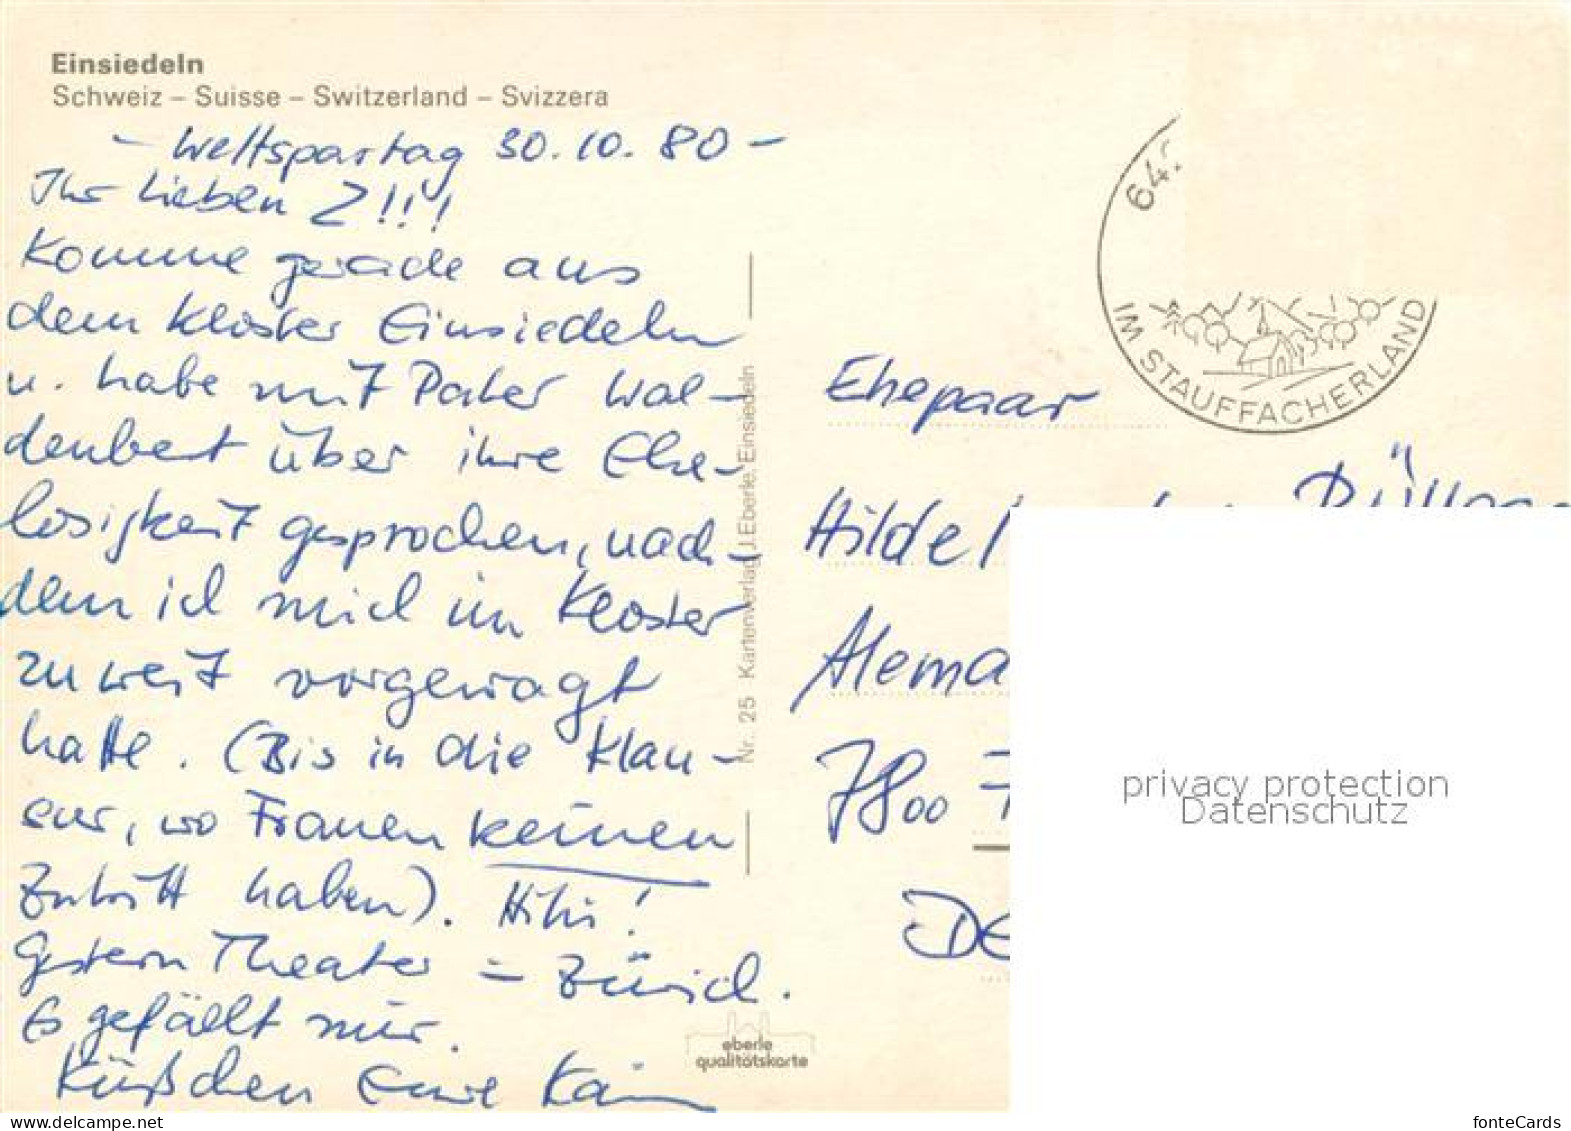 Einsiedeln
Schweiz – Suisse – Switzerland – Svizzera
- Weltspartag 30.10.80 -
Ihr Lieben 2!!!
Komme gerade aus
dem Kloster Einsiedeln
u. habe mit Pater Wal-
denbert über ihre Ehe-
losigkeit gesprochen, nach-
dem ich mich im Kloster
zu weit vorgewagt
hatte. (Bis in die Klau-
sur, wo Frauen keinen
Zutritt haben). Hihi!
Gestern Theater - Zürich.
Es gefällt mir.
Küßchen Eure
Nr. 25 Kartenverlag J. Eberle, Einsiedeln
eberle
qualitätskarte
64
IM STAUFFACHERLAND
Ehepaar
Hilde
Alema
7800
DE
privacy protection
Datenschutz
www.delcampe.net
fonteCards